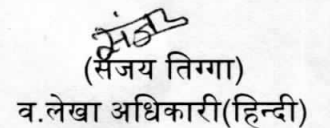 संजय
(संजय तिग्गा)
व.लेखा अधिकारी(हिन्दी)